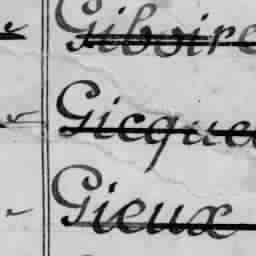 Giboire
Gicque
Gieux